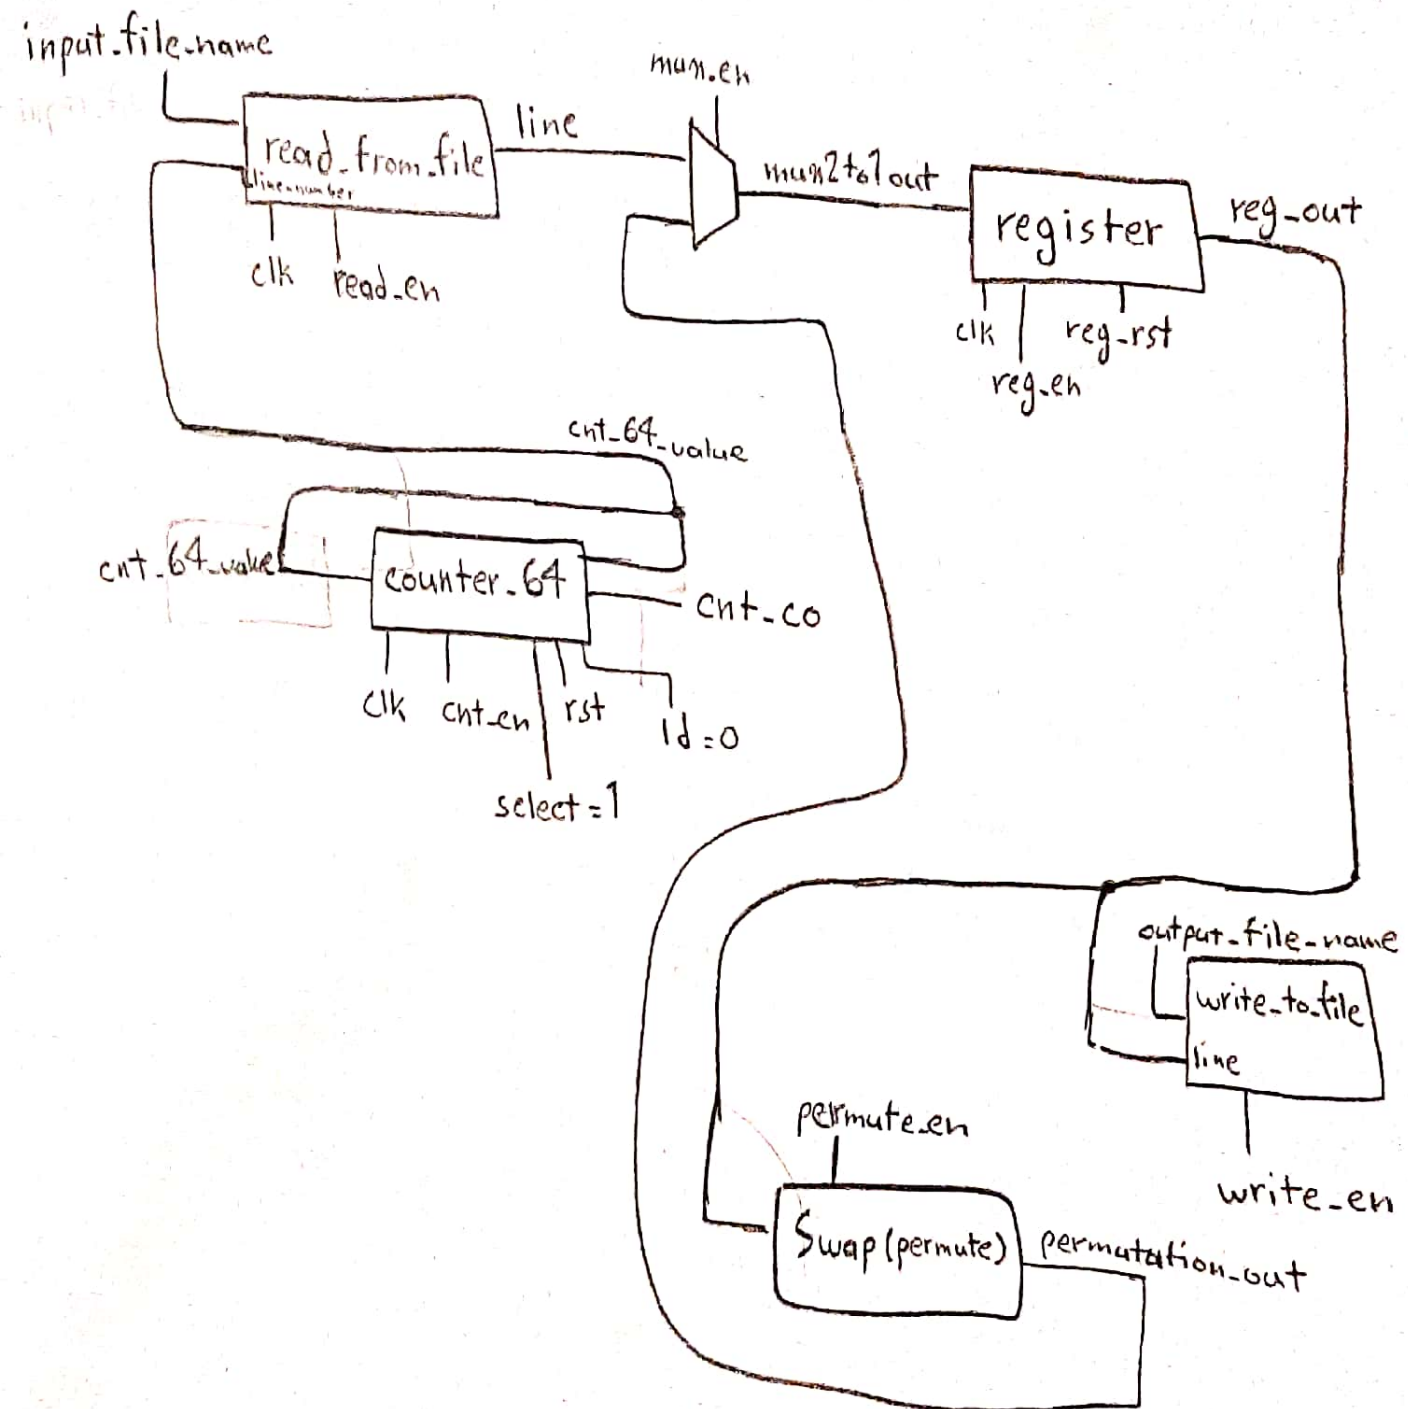 input_file_name
mux_en
read_from_file
line_number
line
mux2to1out
register
reg_out
clk
read_en
clk
reg_rst
reg_en
cnt_64_value
cnt_64_value
counter_64
cnt_co
clk
cnt_en
rst
ld=0
select=1
output_file_name
write_to_file
line
permute_en
write_en
Swap(permute)
permutation_out